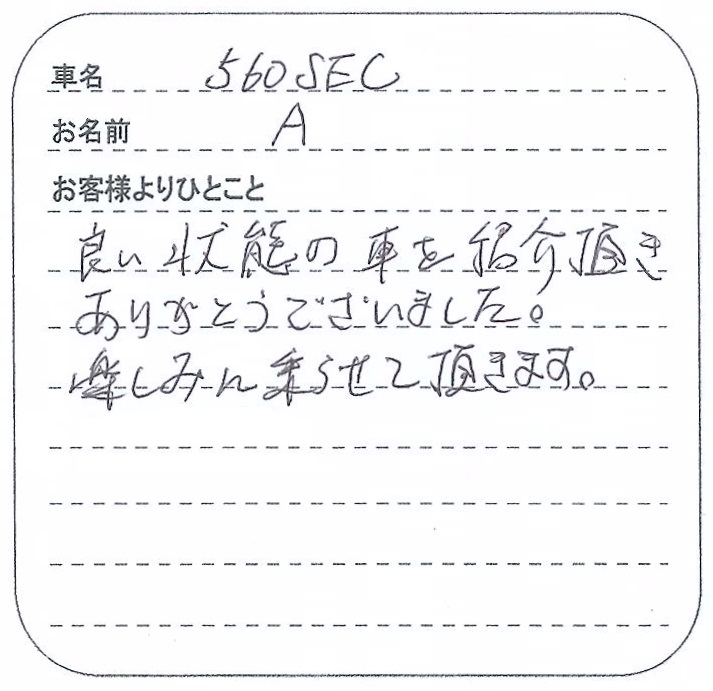 車名 560SEC
お名前 A
お客様よりひとこと
良い状態の車を紹介頂き
ありがとうございました。
楽しみに乗らせて頂きます。